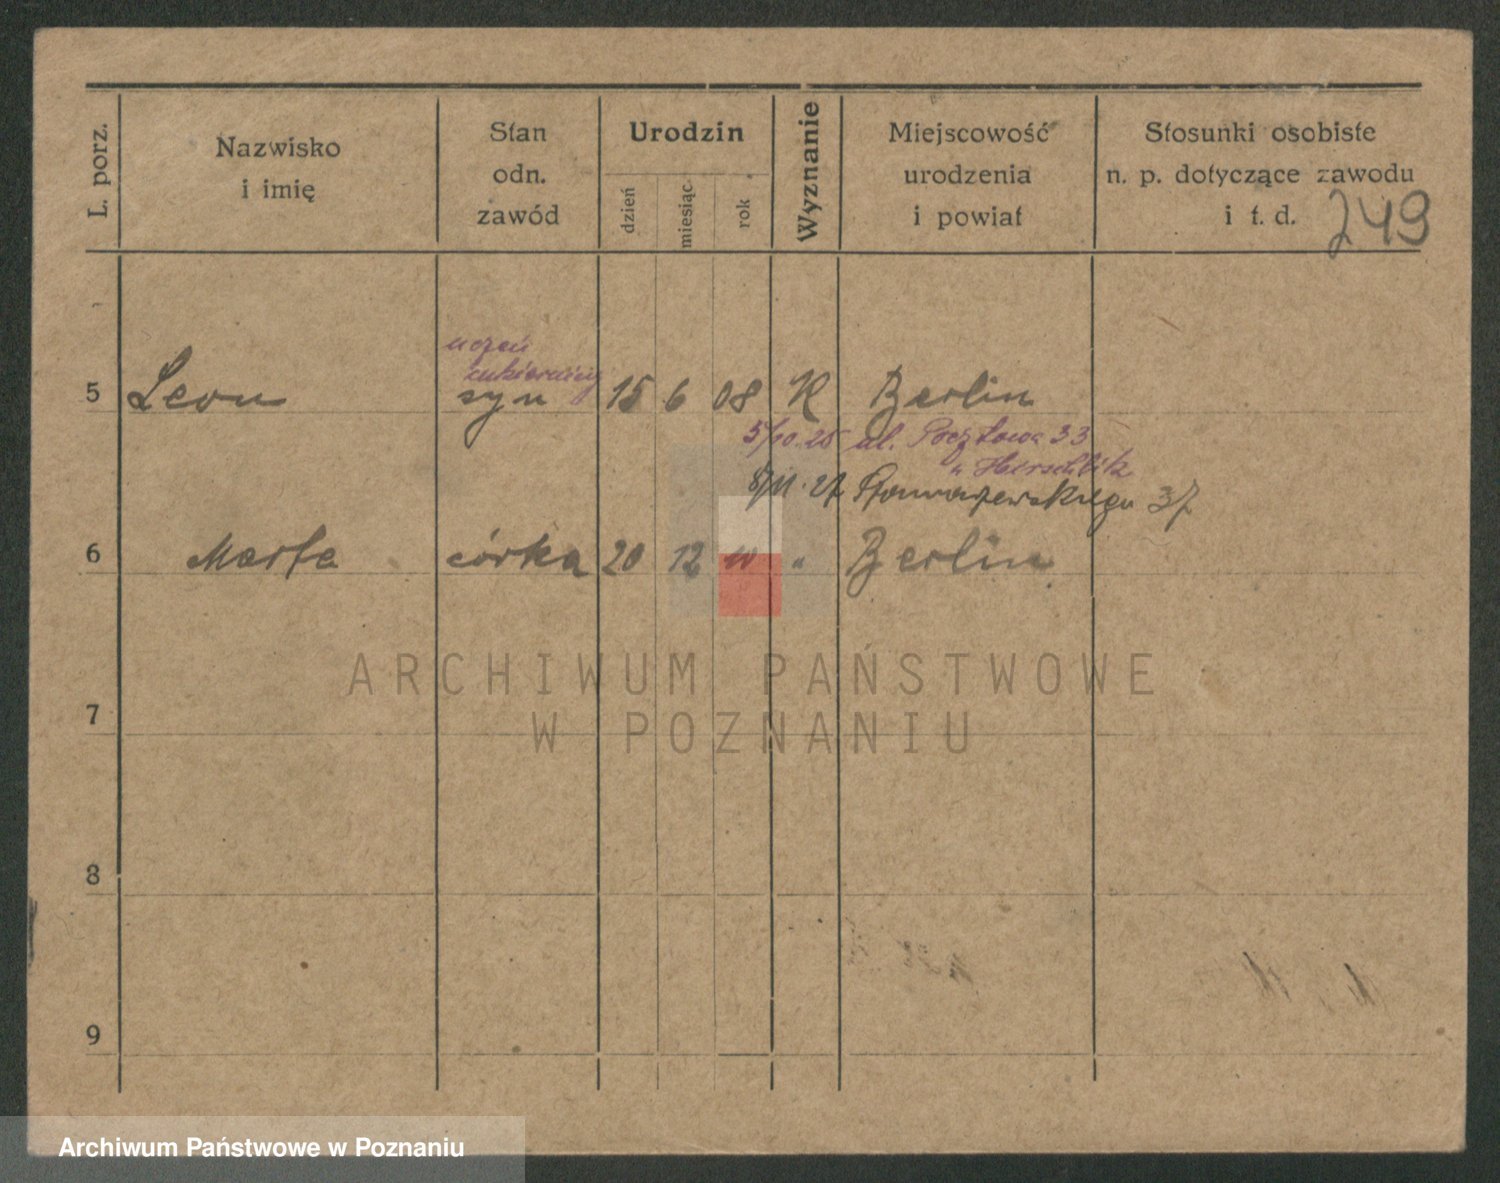 L. porz.
Nazwisko
i imię
Stan
odn.
zawód
Urodzin
dzień
miesiąc
rok
Wyznanie
Miejscowość
urodzenia
i powiat
Stosunki osobiste
n. p. dotyczące zawodu
i t. d.
249
uczeń
cukierniczy
5 Leon syn 15 6 08 K Berlin
5/10.25 ul. Pocztowa 33
37
6 Marta córka 20 12 10 " Berlin
ARCHIWUM PAŃSTWOWE
W POZNANIU
7
8
9
Archiwum Państwowe w Poznaniu